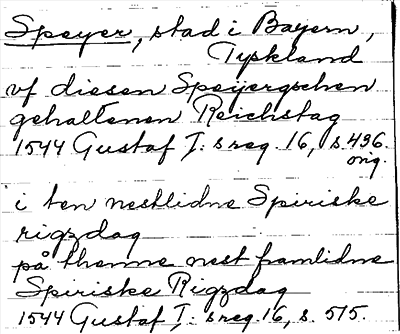 Speyer, stad i Bayern,
Tyskland
vf diesen Speyergschen
gehaltenen Reichstag
1544 Gustaf I: s reg. 16, s. 496.
orig.
i ten nestlidne Spiriske
rigzdag
på thenne nest framlidne
Spiriske Rigzdag
1544 Gustaf I: s reg. 16, s. 575.